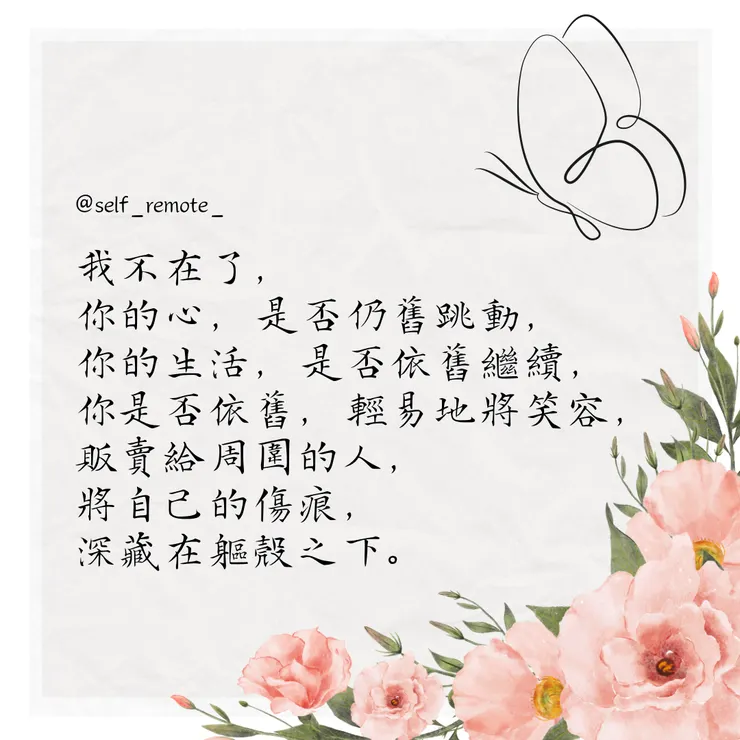 @self_remote_
我不在了，
你的心，是否仍舊跳動，
你的生活，是否依舊繼續，
你是否依舊，輕易地將笑容，
販賣給周圍的人，
將自己的傷痕，
深藏在軀殼之下。